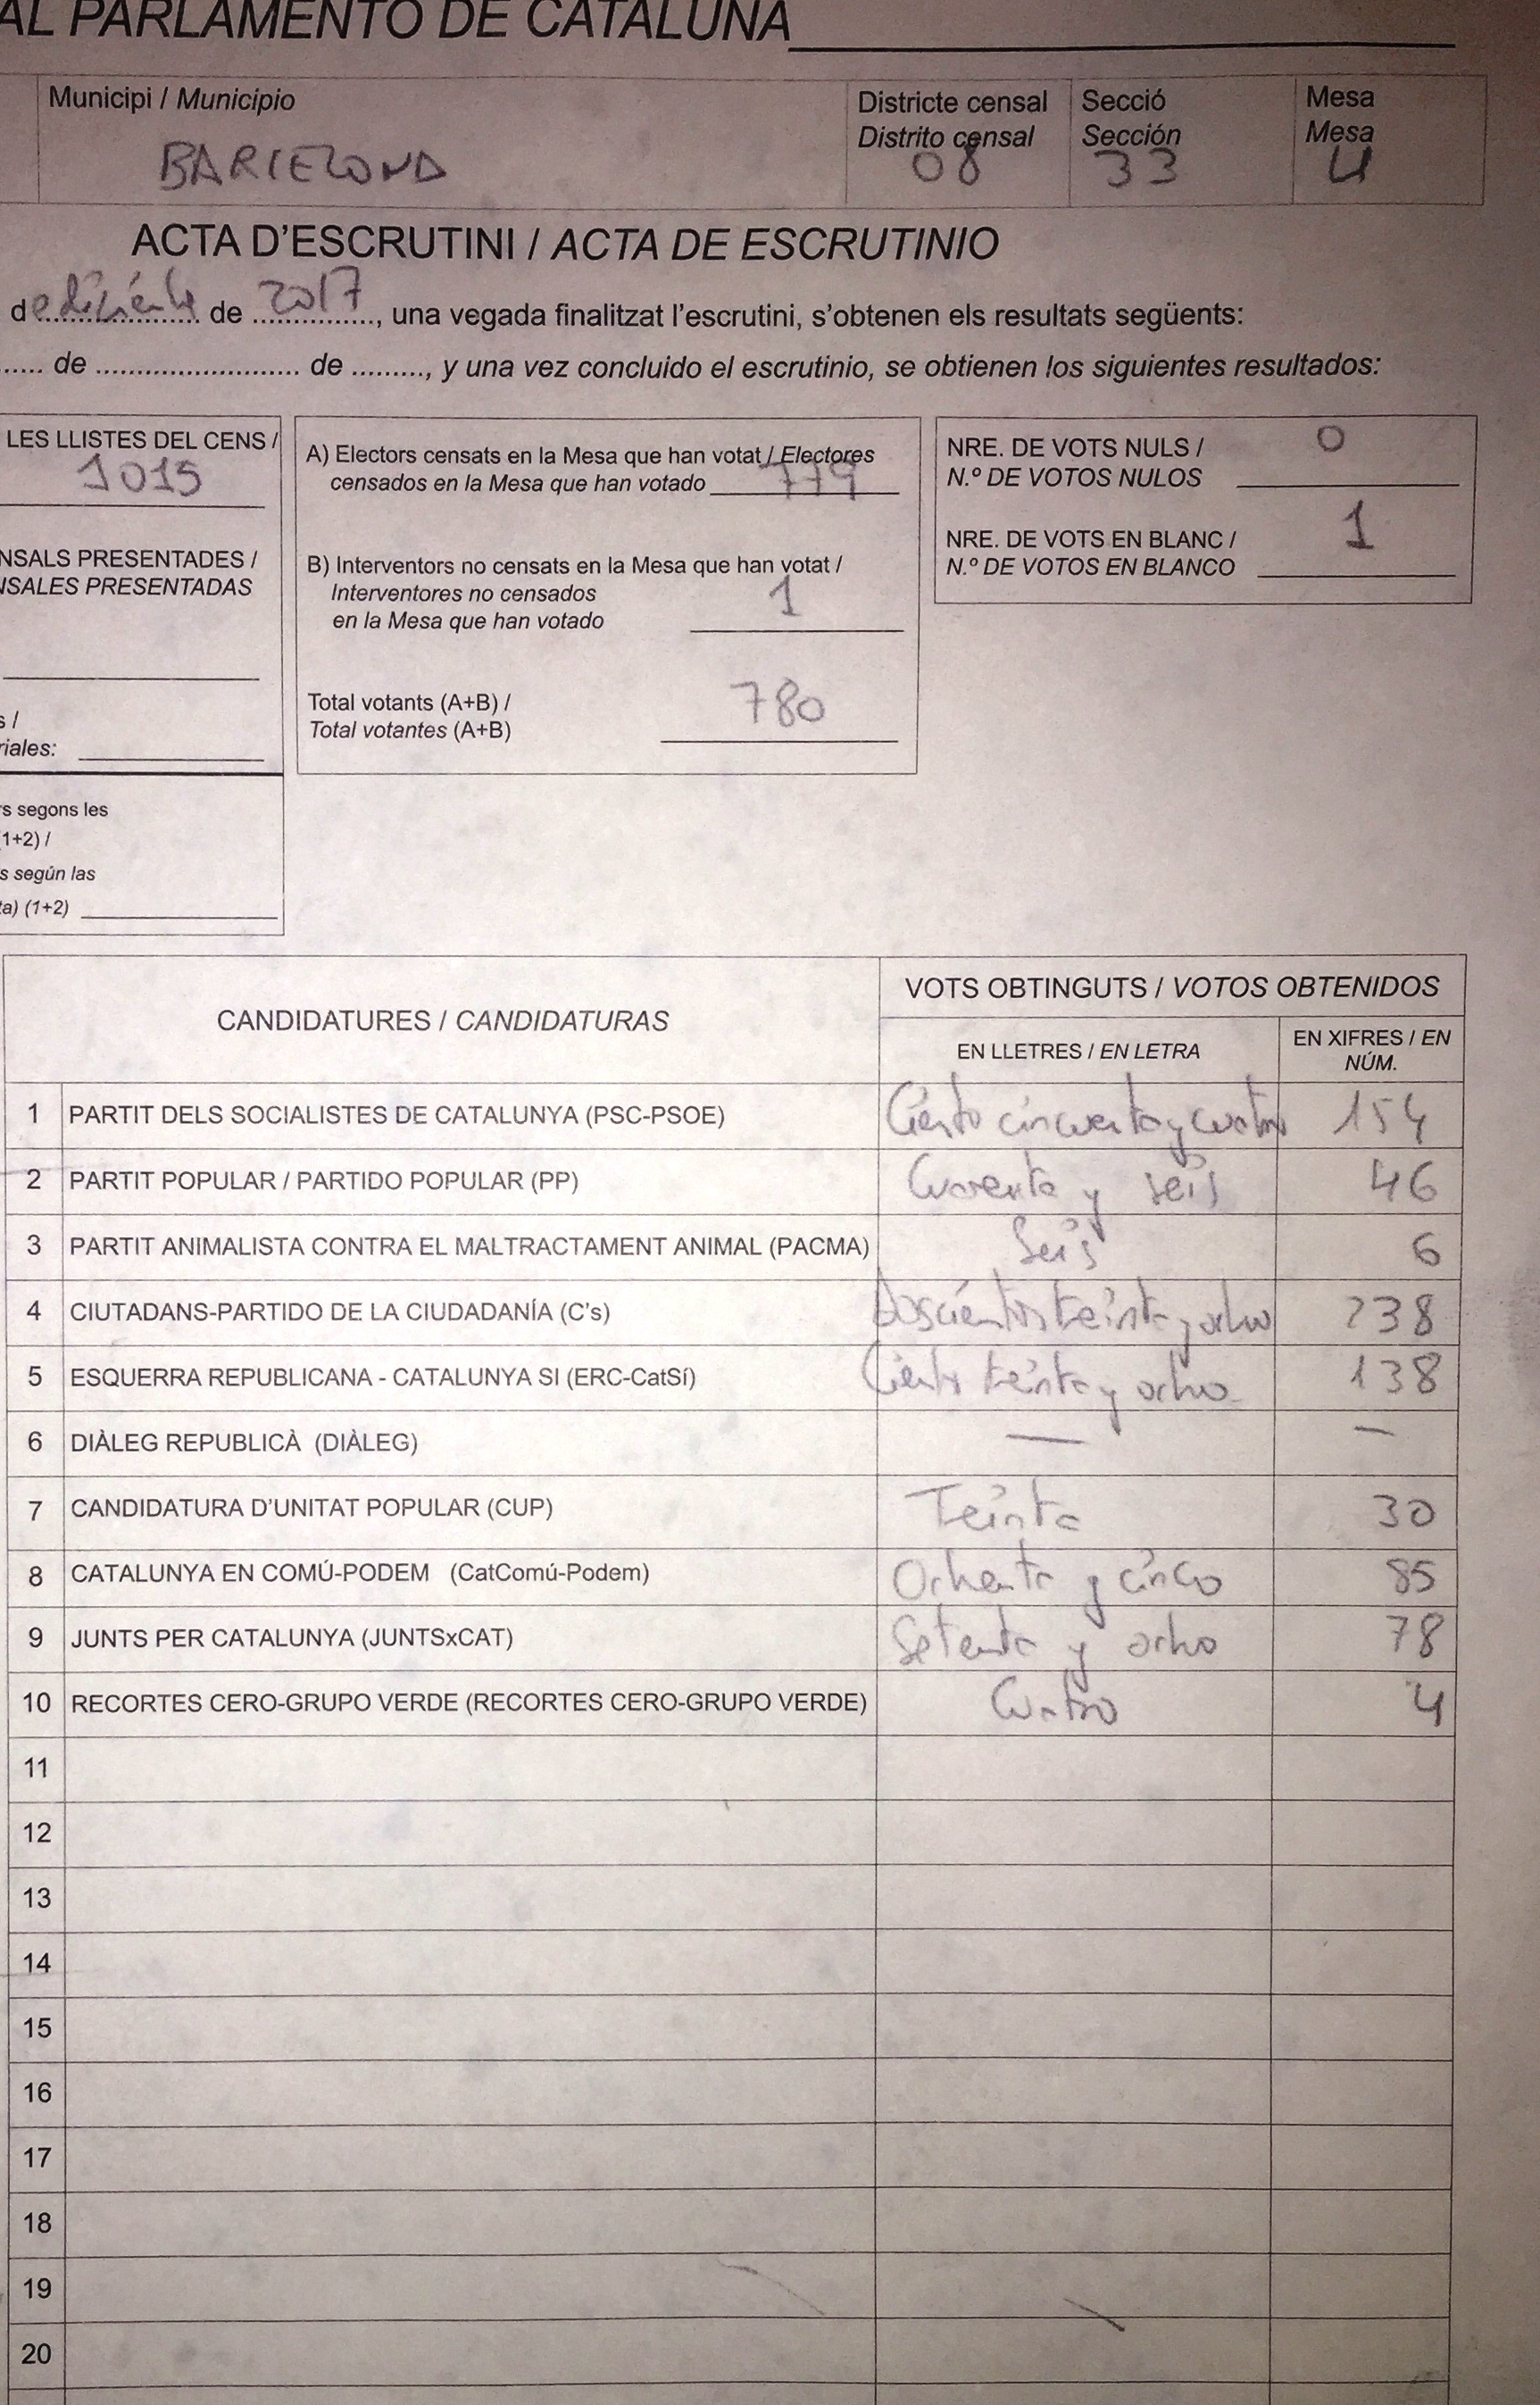 AL PARLAMENTO DE CATALUÑA
Municipi / Municipio
BARCELONA
Districte censal
Distrito censal
08
Secció
Sección
33
Mesa
Mesa
U
ACTA D'ESCRUTINI / ACTA DE ESCRUTINIO
de de 2017, una vegada finalitzat l'escrutini, s'obtenen els resultats següents:
...... de ........................ de ........., y una vez concluido el escrutinio, se obtienen los siguientes resultados:
LES LLISTES DEL CENS /
1015
NSALS PRESENTADES /
NSALES PRESENTADAS
s /
riales:
rs segons les
(1+2) /
s según las
ta) (1+2)
A) Electors censats en la Mesa que han votat / Electores
censados en la Mesa que han votado 779
B) Interventors no censats en la Mesa que han votat /
Interventores no censados
en la Mesa que han votado 1
Total votants (A+B) /
Total votantes (A+B) 780
NRE. DE VOTS NULS /
N.º DE VOTOS NULOS 0
NRE. DE VOTS EN BLANC /
N.º DE VOTOS EN BLANCO 1
CANDIDATURES / CANDIDATURAS
VOTS OBTINGUTS / VOTOS OBTENIDOS
EN LLETRES / EN LETRA
EN XIFRES / EN
NÚM.
1 PARTIT DELS SOCIALISTES DE CATALUNYA (PSC-PSOE) Ciento cincuenta y cuatro 154
2 PARTIT POPULAR / PARTIDO POPULAR (PP) Cuarenta y seis 46
3 PARTIT ANIMALISTA CONTRA EL MALTRACTAMENT ANIMAL (PACMA) Seis 6
4 CIUTADANS-PARTIDO DE LA CIUDADANÍA (C's) Doscientos treinta y ocho 238
5 ESQUERRA REPUBLICANA - CATALUNYA SI (ERC-CatSí) Ciento treinta y ocho 138
6 DIÀLEG REPUBLICÀ (DIÀLEG) — —
7 CANDIDATURA D'UNITAT POPULAR (CUP) Treinta 30
8 CATALUNYA EN COMÚ-PODEM (CatComú-Podem) Ochenta y cinco 85
9 JUNTS PER CATALUNYA (JUNTSxCAT) Setenta y ocho 78
10 RECORTES CERO-GRUPO VERDE (RECORTES CERO-GRUPO VERDE) Cuatro 4
11
12
13
14
15
16
17
18
19
20